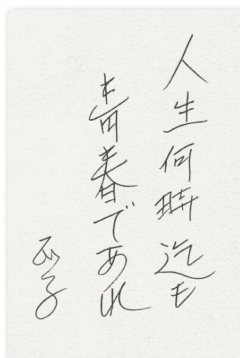 人生何時迄も
青春であれ